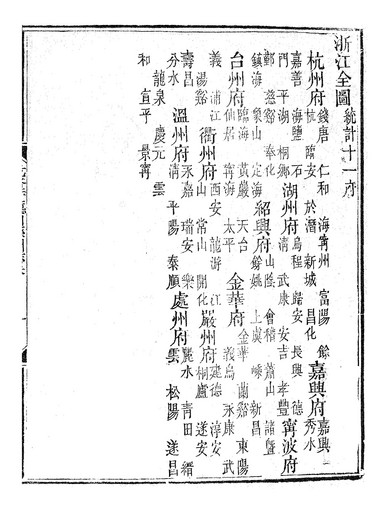 浙江全圖 統計十一府
杭州府 錢唐 仁和 海寧州 富陽 餘杭 臨安 於潛 新城 昌化 嘉興府 嘉興 秀水
嘉善 海鹽 石門 平湖 桐鄉 湖州府 烏程 歸安 長興 德清 武康 安吉 孝豐 寧波府
鄞 慈谿 奉化 鎮海 象山 定海 紹興府 山陰 會稽 蕭山 諸暨 餘姚 上虞 嵊 新昌
台州府 臨海 黃巖 天台 仙居 寧海 太平 金華府 金華 蘭谿 東陽 義烏 永康 武
義 浦江 湯谿 衢州府 西安 龍游 江山 常山 開化 嚴州府 建德 淳安 桐廬 遂安
壽昌 分水 溫州府 永嘉 瑞安 樂清 平陽 泰順 處州府 麗水 青田 縉雲 松陽 遂昌
龍泉 慶元 雲和 宣平 景寧